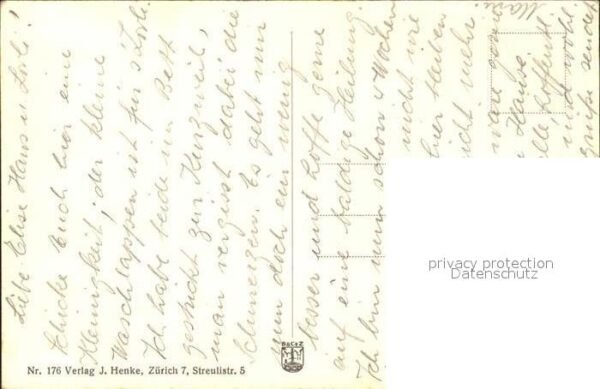 Liebe Elise Hans u. Lorli!
Schicke Euch hier eine
Kleinigkeit, der kleine
Waschlappen ist für s'Lorli.
Ich habe beide im Bett
gestrickt zur Kurzweil,
man vergisst dabei die
Schmerzen. Es geht mir
nun doch ein wenig
besser und hoffe gerne
auf eine baldige Heilung.
Ich bin nun schon 4 Wochen
nicht wie
hier bleiben
nicht mehr
wäre
Hause.
alle hoffentl.
wohl
Grüße sendet
Marie.
Nr. 176 Verlag J. Henke, Zürich 7, Streulistr. 5
privacy protection
Datenschutz